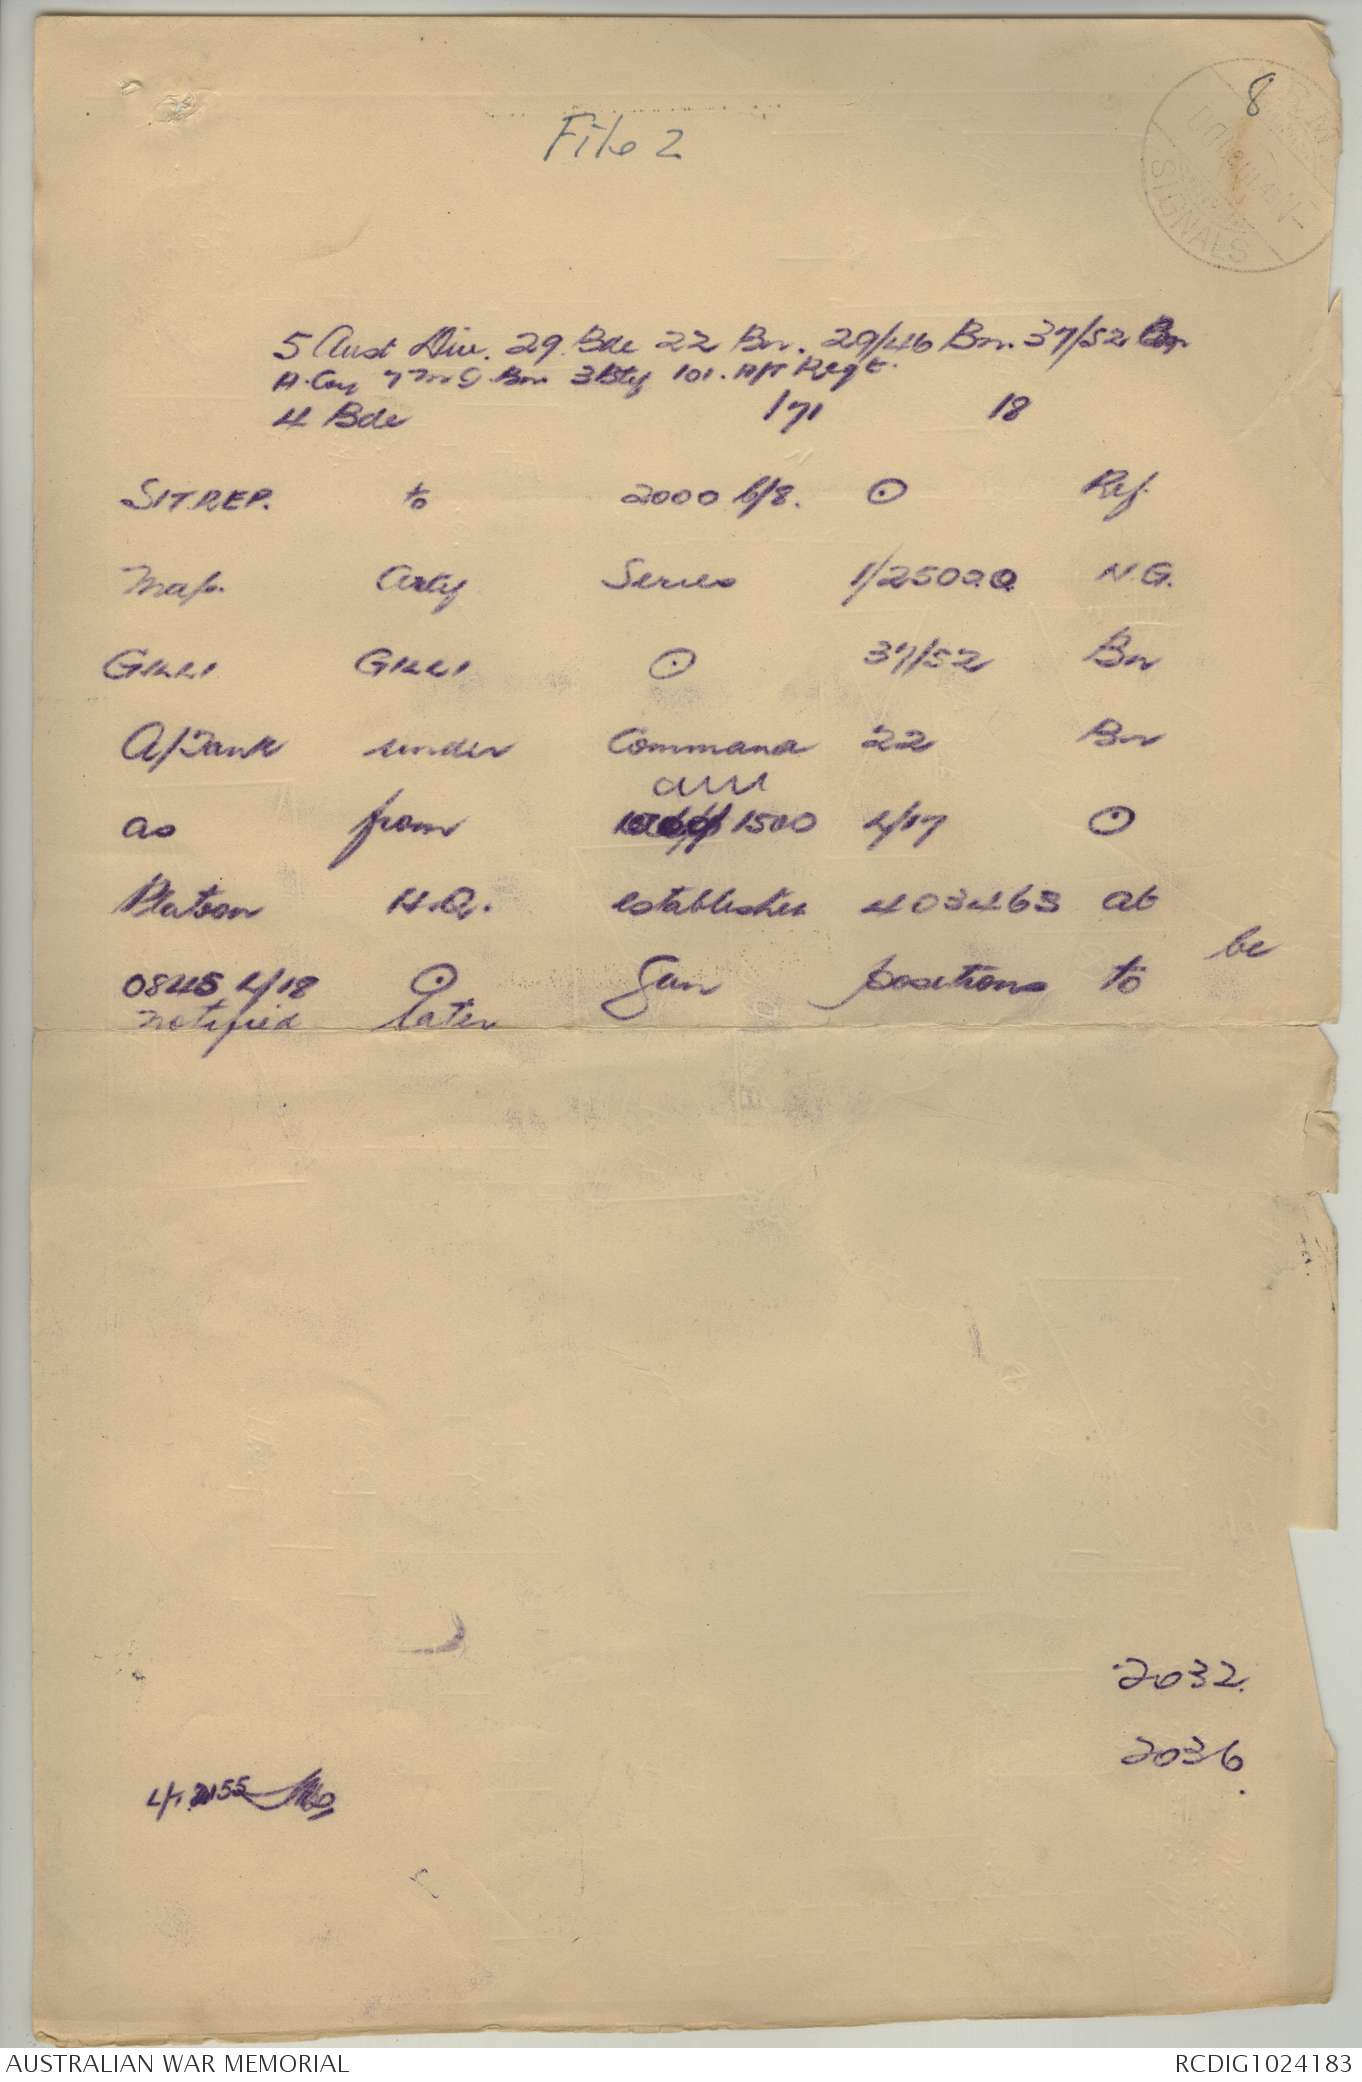 8
File 2
SIGNALS
5 Aust Div. 29. Bde 22 Bn. 29/46 Bn. 37/52 Bn
A. Coy 7 M G Bn 3 Bty 101. A/T Regt.
4 Bde 171 18
SITREP. to 2000 6/8. ⊙ Ref.
Map. Arty Series 1/25000 N.G.
GILLI GILLI ⊙ 37/52 Bn
A/Tank under Command 22 Bn
as from 1500 4/17 ⊙
Platoon H.Q. established 403463 at
0845 4/18 ⊙ Gun positions to be
notified later
2032.
2036.
AUSTRALIAN WAR MEMORIAL RCDIG1024183